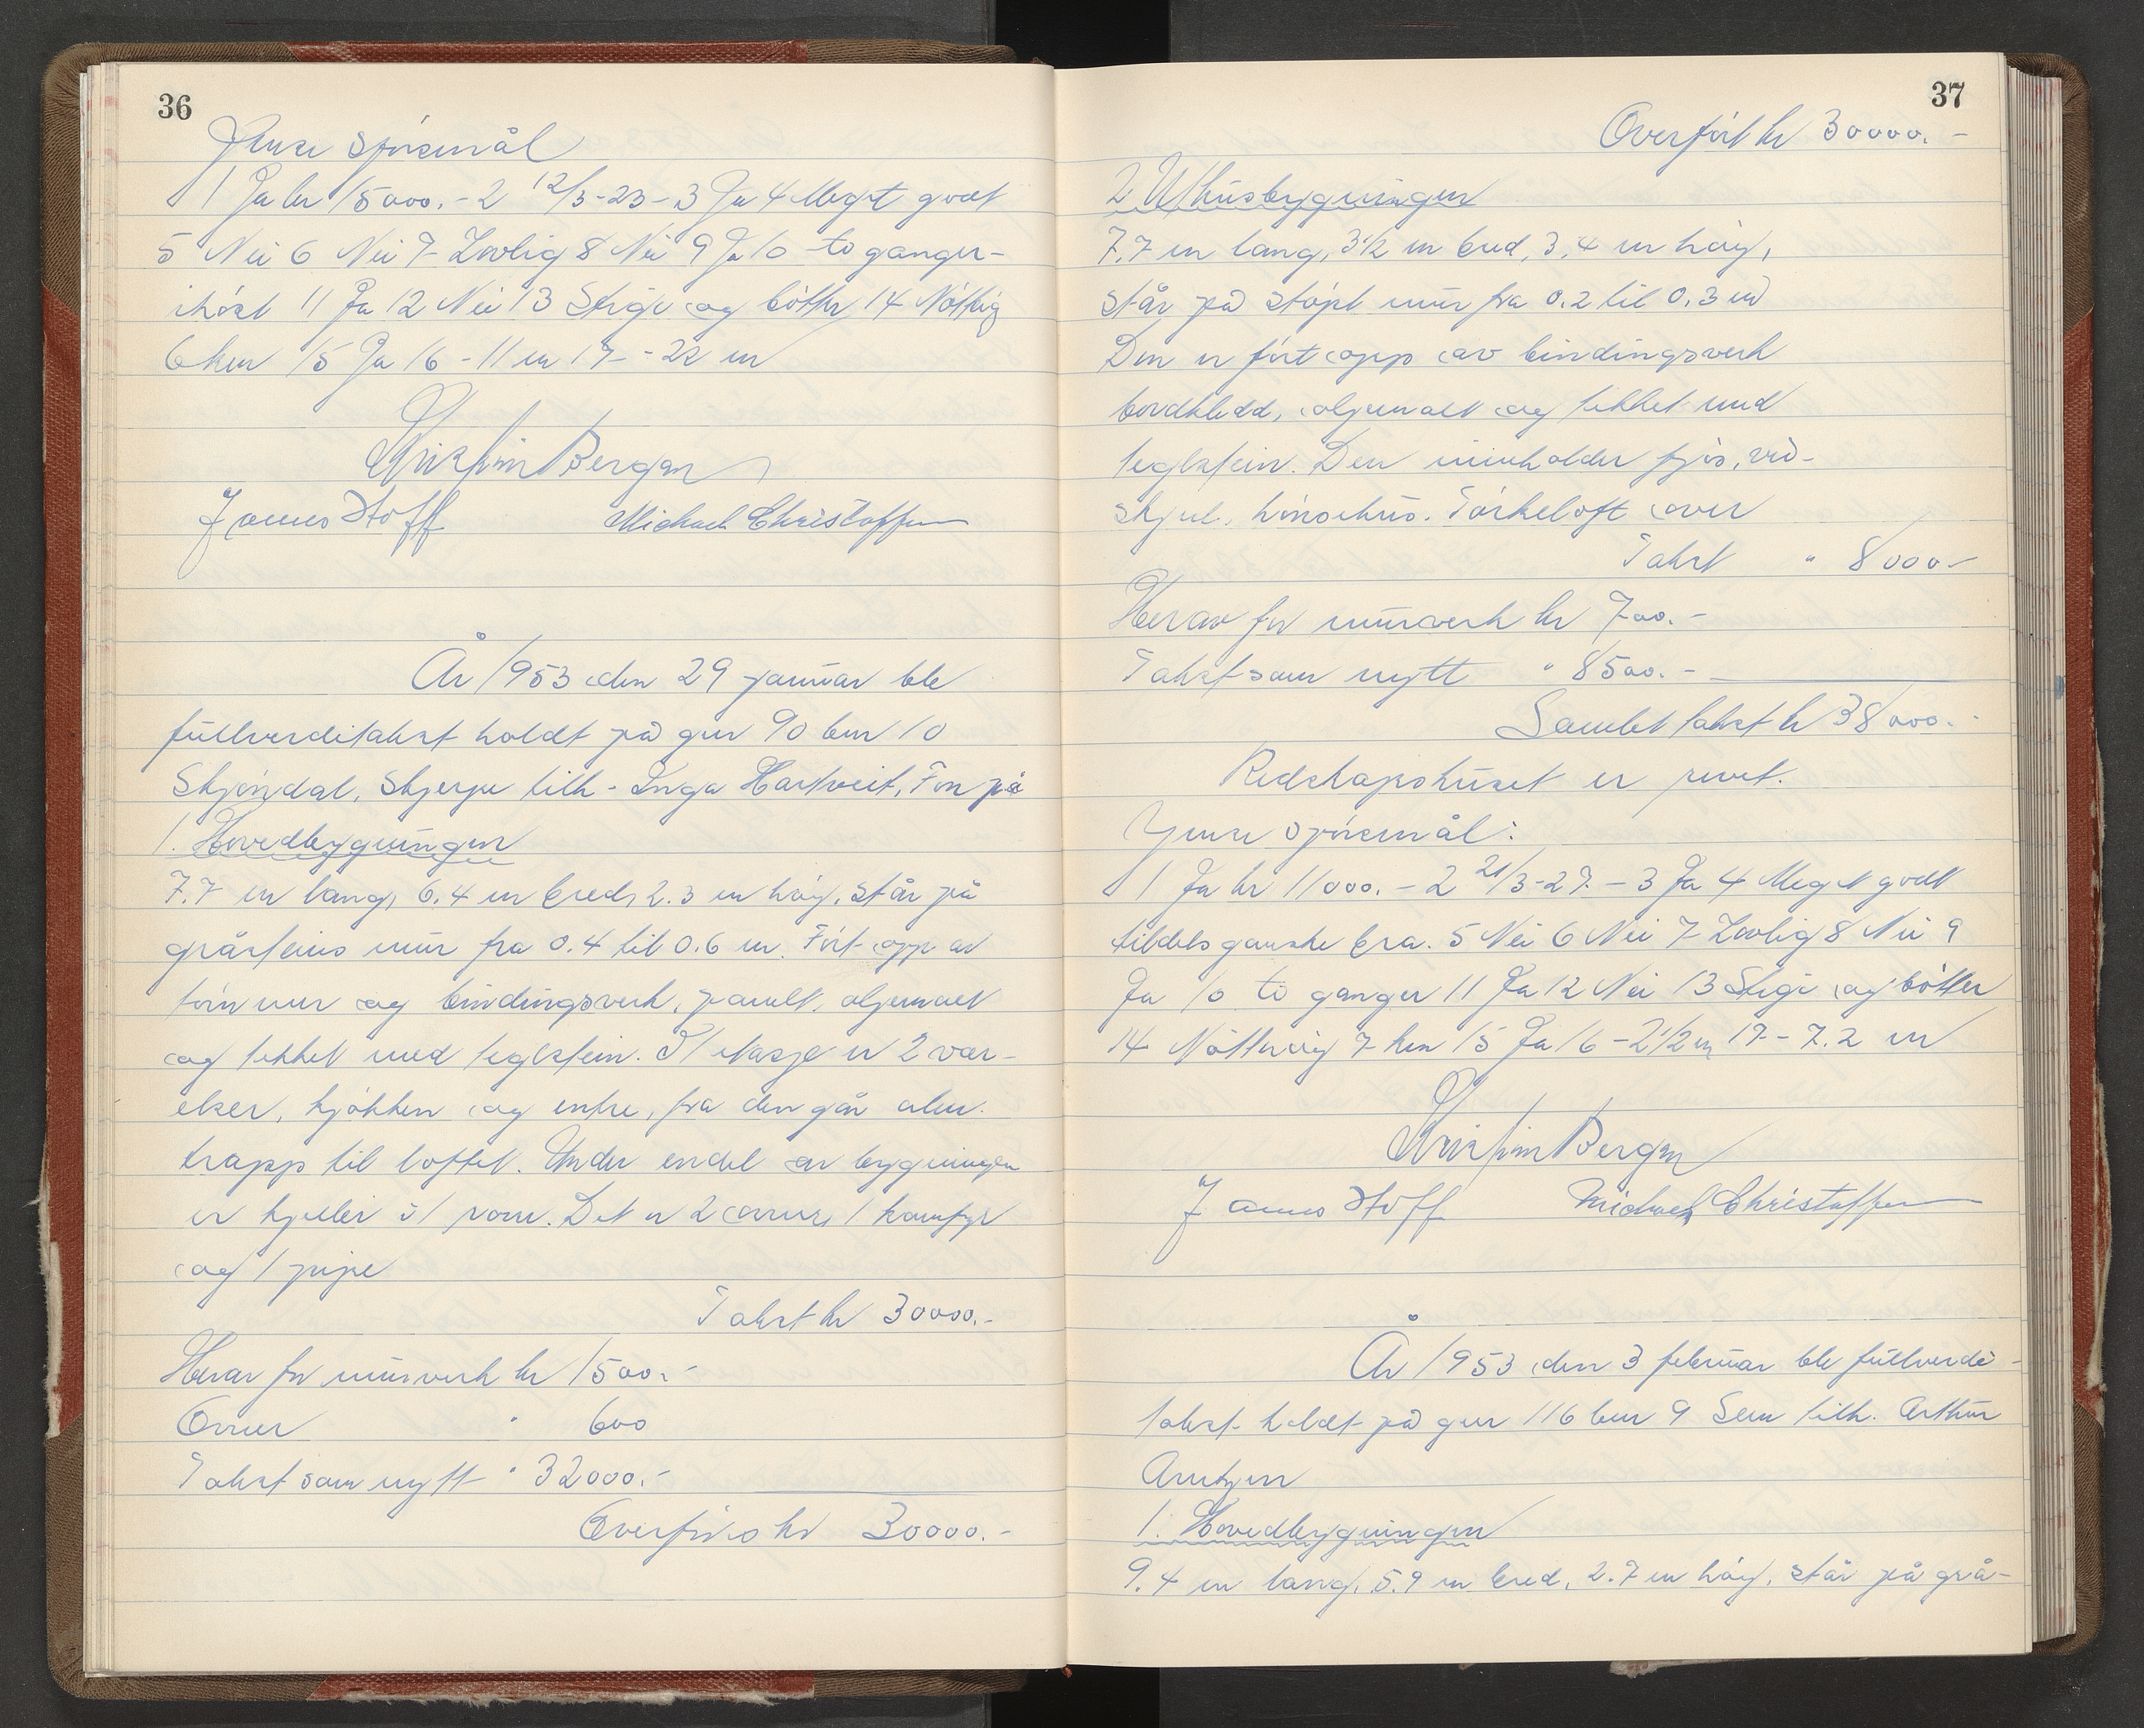 36
Ymse spörsmål
1 Ja kr 15000.- 2 12/3-23 - 3 Ja 4 Meget godt
5 Nei 6 Nei 7 Lovlig 8 Nei 9 Ja 10 to ganger
ihöst 11 Ja 12 Nei 13 Stige og bötter 14 Nötterøy
6 km 15 Ja 16 - 11 m 17 - 22 m
Kristian Bergan
James Hoff Michael Christoffersen
År 1953 den 29 januar ble
fullverditakst holdt på gnr 90 bnr 10
Skjöndal, Skjerpe tilh. Inga Hartveit, Fon på
1. Hovedbygningen
7.7 m lang, 6.4 m bred, 2.3 m höy, står på
gråsteins mur fra 0.4 til 0.6 m. Fört opp av
tömmer og bindingsverk, panelt, oljemalt
og tekket med teglstein. I 1 etasje er 2 vær-
elser, kjökken og entre, fra den går alm.
trapp til loftet. Under endel av bygningen
er kjeller i 1 rom. Det er 2 ovner, 1 komfyr
og 1 pipe
Takst kr 30000.-
Herav for murverk kr 1500.-
Ovner " 600
Takst som nytt " 32000.-
Overföres kr 30000.-
37
Overfört kr 30000.-
2 Uthusbygningen
7.7 m lang, 3 1/2 m bred, 3.4 m höy,
står på stöpt mur fra 0.2 til 0.3 m
Den er fört opp av bindingsverk
bordkledd, oljemalt og tekket med
teglstein. Den inneholder fjös, ved-
skjul, hönsehus. Törkeloft over
Takst " 8000.-
Herav for murverk kr 700.-
Takst som nytt " 8500.-
Samlet takst kr 38000.-
Redskapshuset er revet.
Ymse spörsmål:
1 Ja kr 11000.- 2 21/3-27.- 3 Ja 4 Meget godt
tildels ganske bra. 5 Nei 6 Nei 7 Lovlig 8 Nei 9
Ja 10 to ganger 11 Ja 12 Nei 13 Stige og bötter
14 Nötteröy 7 km 15 Ja 16 - 21/2 m 17 - 7.2 m
Kristian Bergan
James Hoff Michael Christoffersen
År 1953 den 3 februar ble fullverdi-
takst holdt på gnr 116 bnr 9 Sem tilh. Arthur
Arntzen
1. Hovedbygningen
9.4 m lang, 5.9 m bred, 2.7 m höy, står på grå-